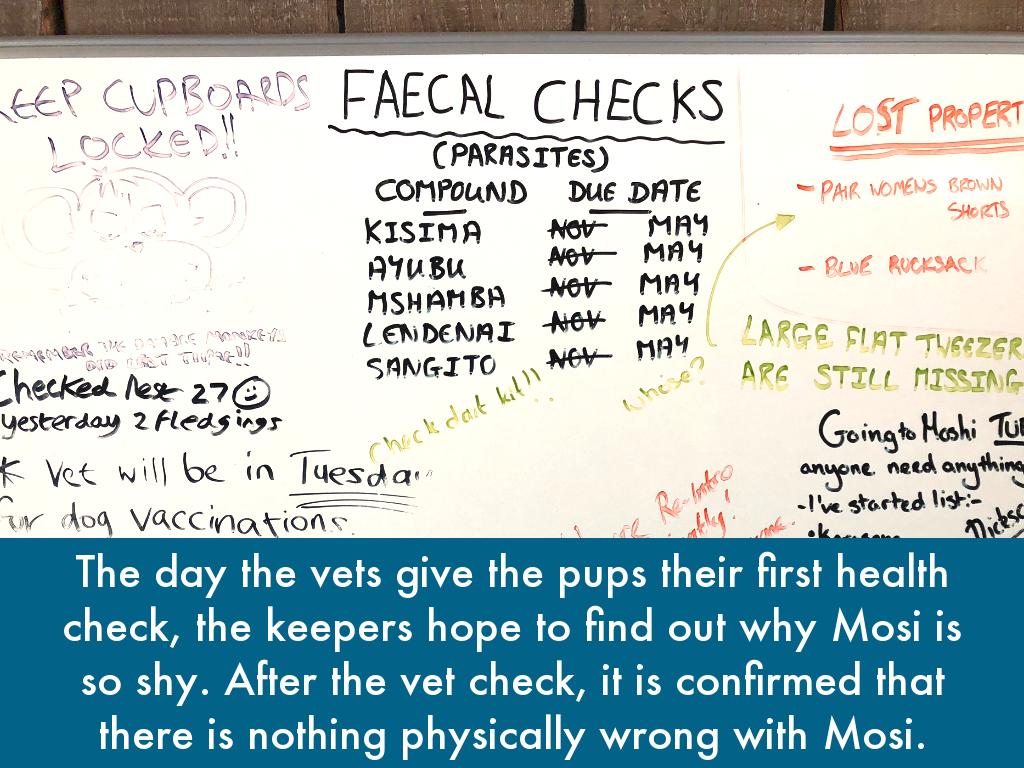 KEEP CUPBOARDS
LOCKED!!
REMEMBER THE
DID LAST TIME!!
Checked Nest 27
yesterday 2 fledgings
* Vet will be in Tuesday
for dog vaccinations.
FAECAL CHECKS
(PARASITES)
COMPOUND DUE DATE
KISIMA NOV MAY
AYUBU NOV MAY
MSHAMBA NOV MAY
LENDENAI NOV MAY
SANGITO NOV MAY
Check dart kit!!
whose?
Re-Intro
LOST PROPERT
- PAIR WOMENS BROWN
SHORTS
- BLUE RUCKSACK
LARGE FLAT TWEEZER
ARE STILL MISSING
Going to Moshi TUE
anyone need anything
- I've started list:-
The day the vets give the pups their first health
check, the keepers hope to find out why Mosi is
so shy. After the vet check, it is confirmed that
there is nothing physically wrong with Mosi.